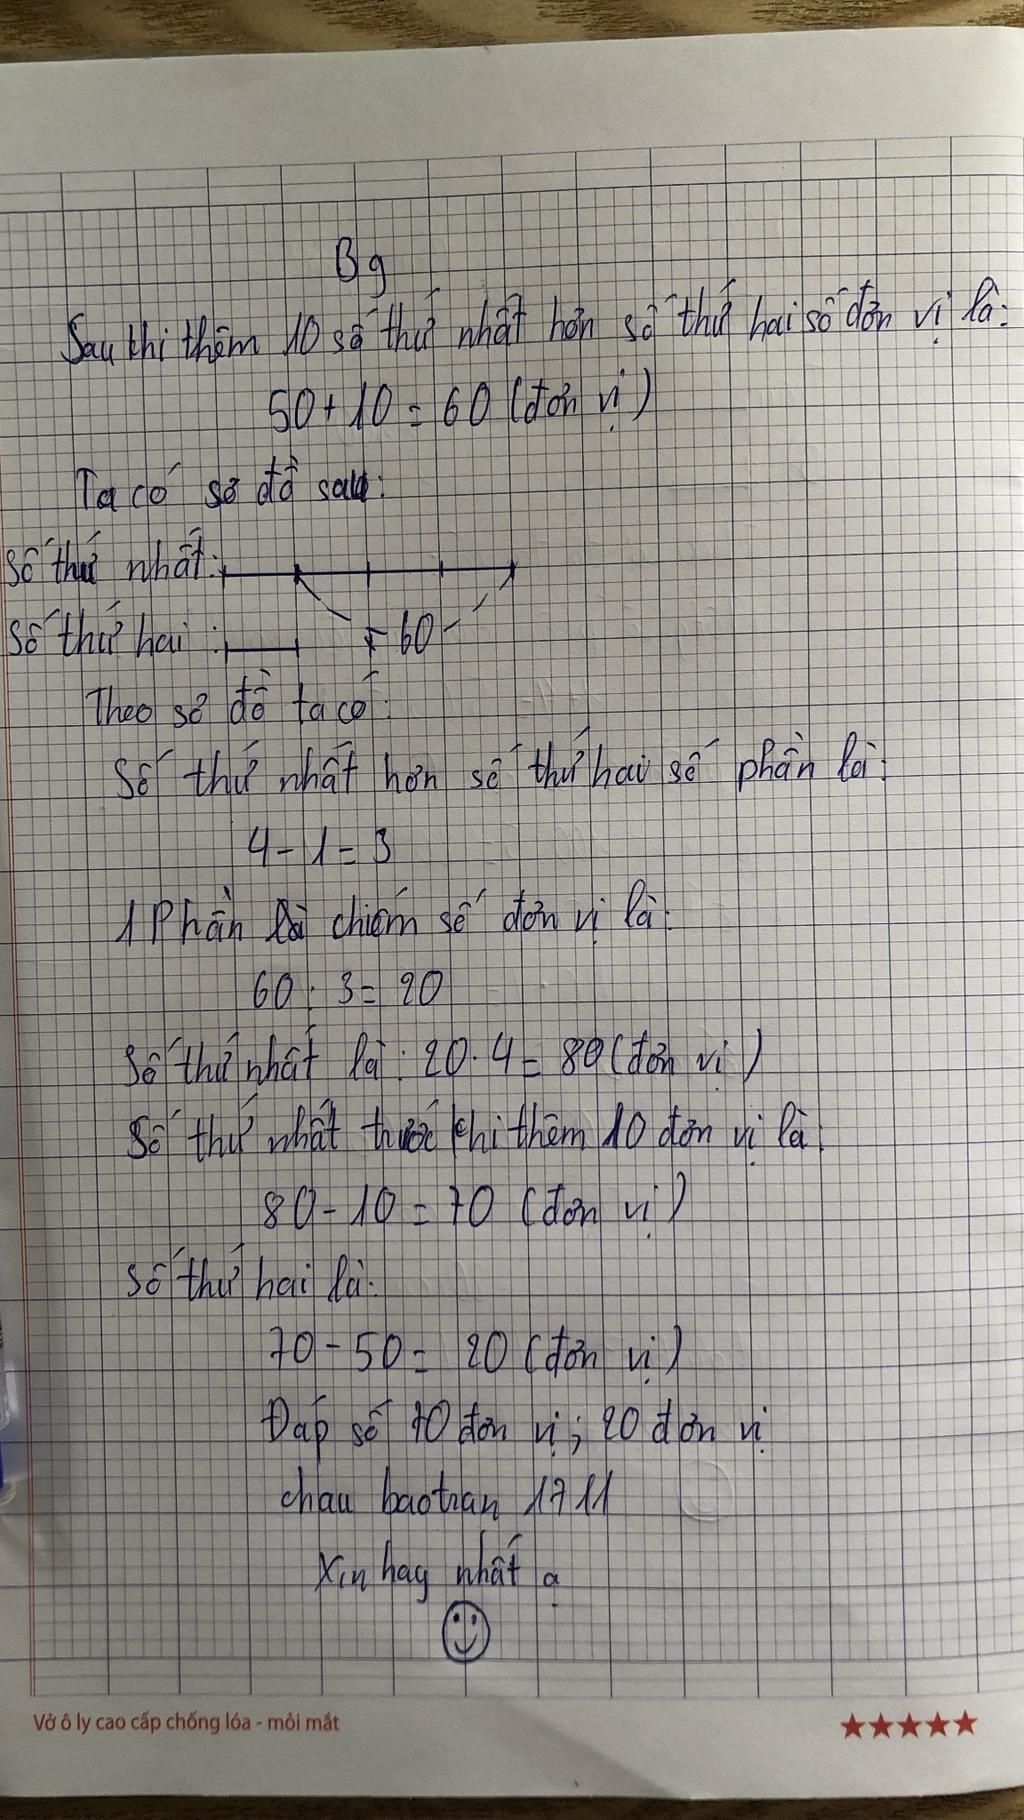 Bg
Sau khi thêm 10 số thứ nhất hơn số thứ hai số đơn vị là:
50 + 10 = 60 (đơn vị)
Ta có sơ đồ sau:
Số thứ nhất:
Số thứ hai :
60
Theo sơ đồ ta có:
Số thứ nhất hơn số thứ hai số phần là:
4 - 1 = 3
1 Phần chiếm số đơn vị là:
60 : 3 = 20
Số thứ nhất là : 20 . 4 = 80 (đơn vị)
Số thứ nhất trước khi thêm 10 đơn vị là:
80 - 10 = 70 (đơn vị)
Số thứ hai là:
70 - 50 = 20 (đơn vị)
Đáp số 70 đơn vị ; 20 đơn vị
chau baotran 1711
Xin hay nhất ạ
Vở ô ly cao cấp chống lóa - mỏi mắt